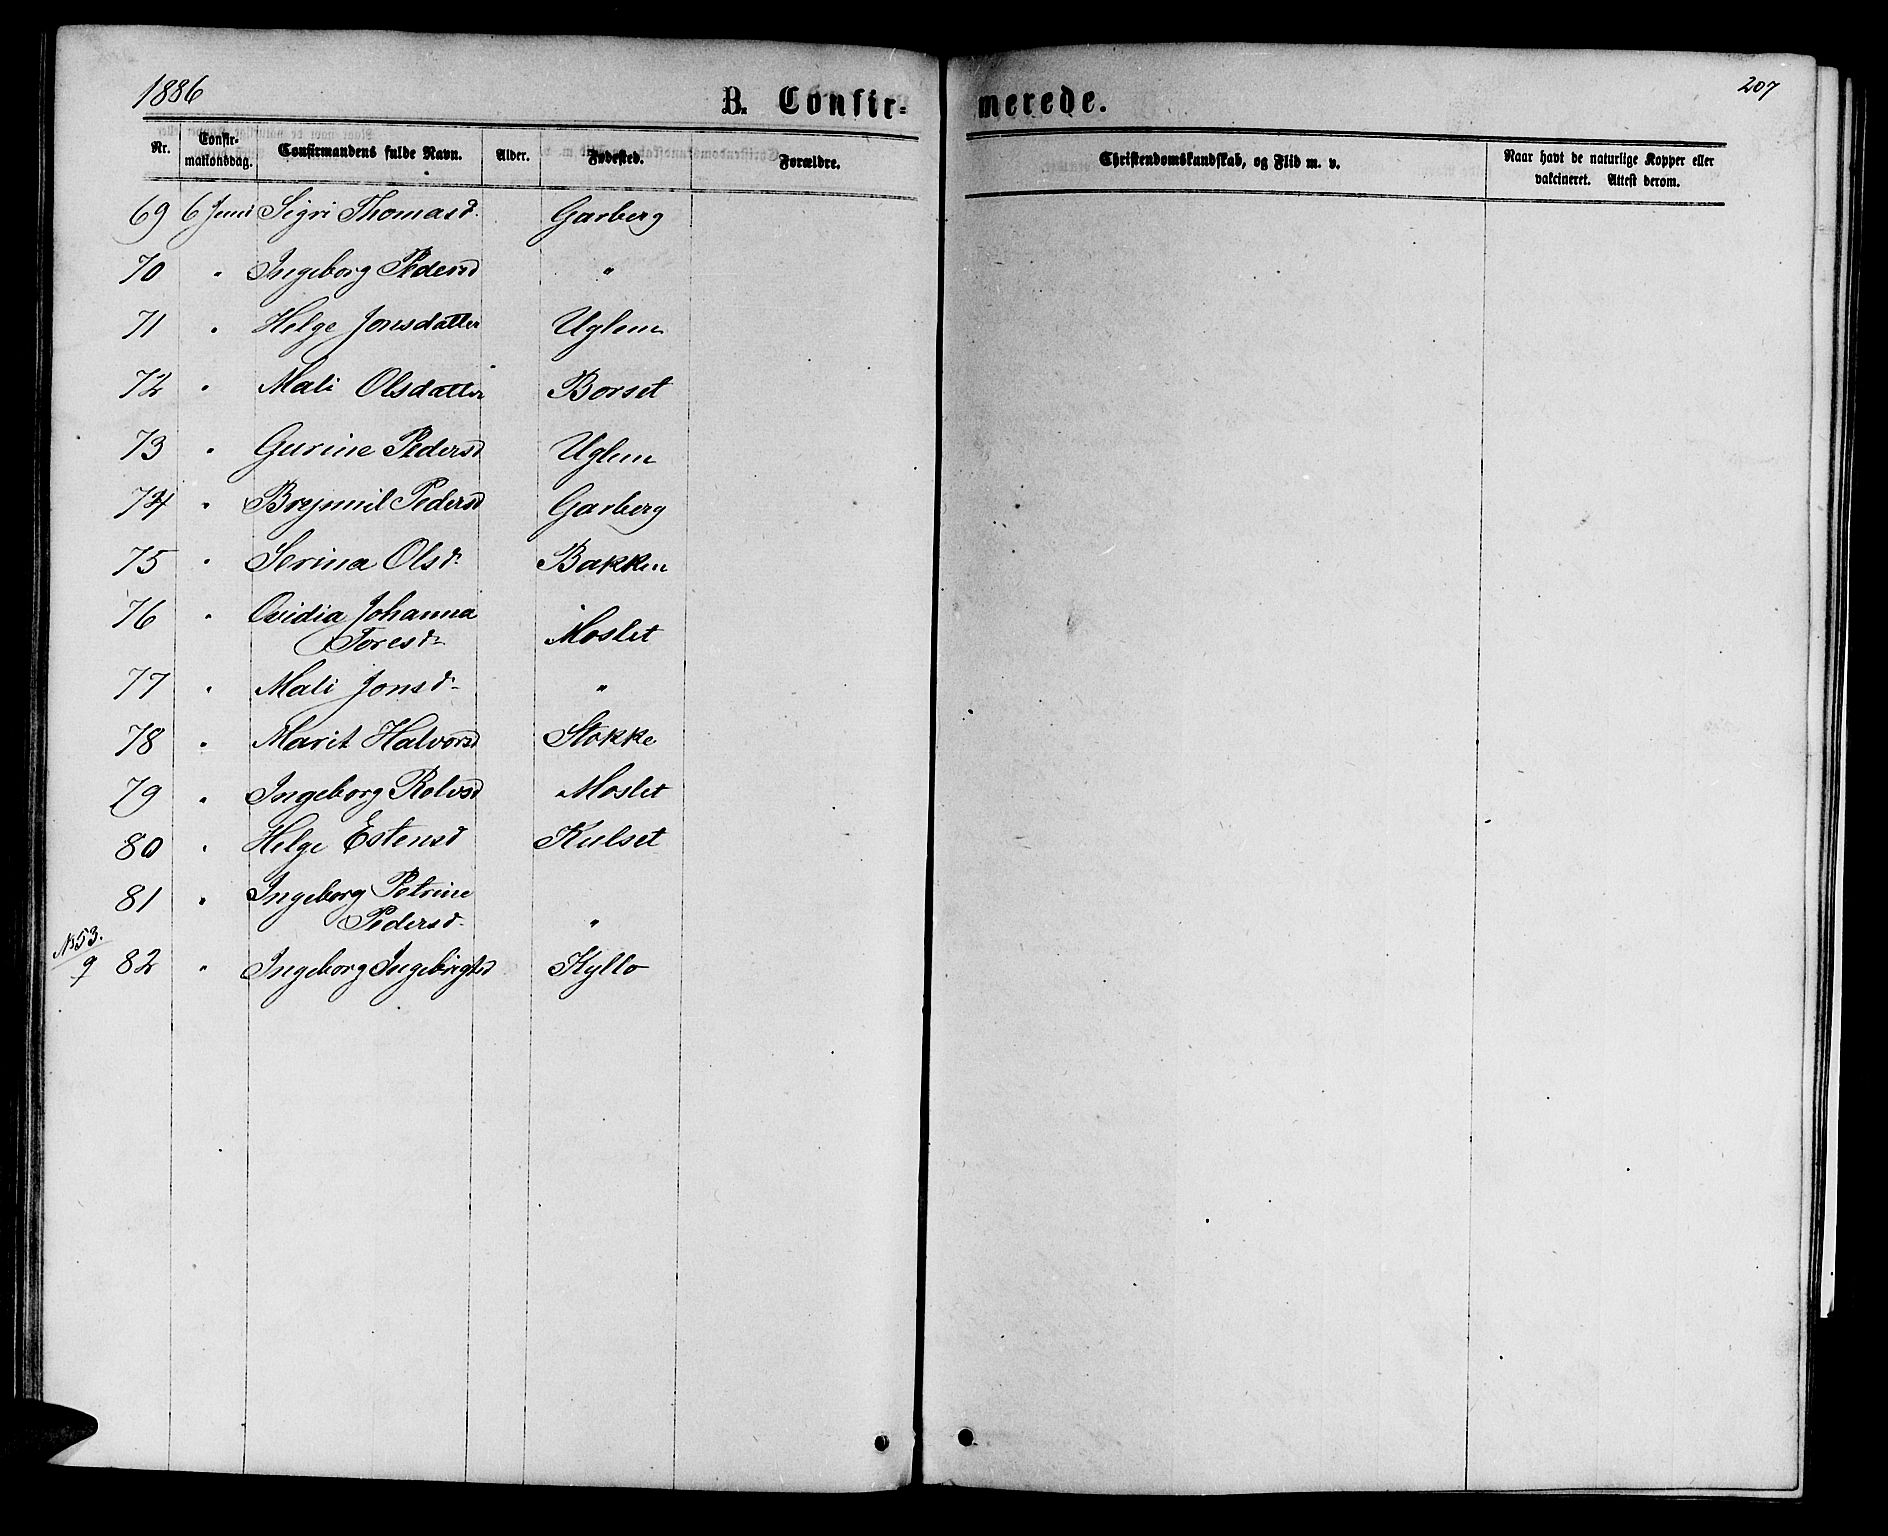 1886
B. Confir-
merede.
207
Nr.
Confir-
mationsdag.
Confirmandens fulde Navn.
Alder.
Fødested.
Forældre.
Christendomskundskab, og Flid m. v.
Naar havt de naturlige Kopper eller
vakcineret. Attest derom.
69 6 Juni Sigri Thomasd. Garberg
70 " Ingeborg Pedersd "
71 " Helge Jonsdatter Uglem
72 " Mali Olsdatter Borset
73 " Gurine Pedersd Uglem
74 " Pedersd Garberg
75 " Serina Olsd. Bakken
76 " Ovidia Johanna
Toresd. Moslet
77 " Mali Jonsd. "
78 " Marit Halvorsd Stokke
79 " Ingeborg Rolvsd Moslet
80 " Helge Estensd Kulset
81 " Ingeborg Petrine
Pedersd. "
N53.
9 82 " Ingeborg Ingebrigtsd Kyllo